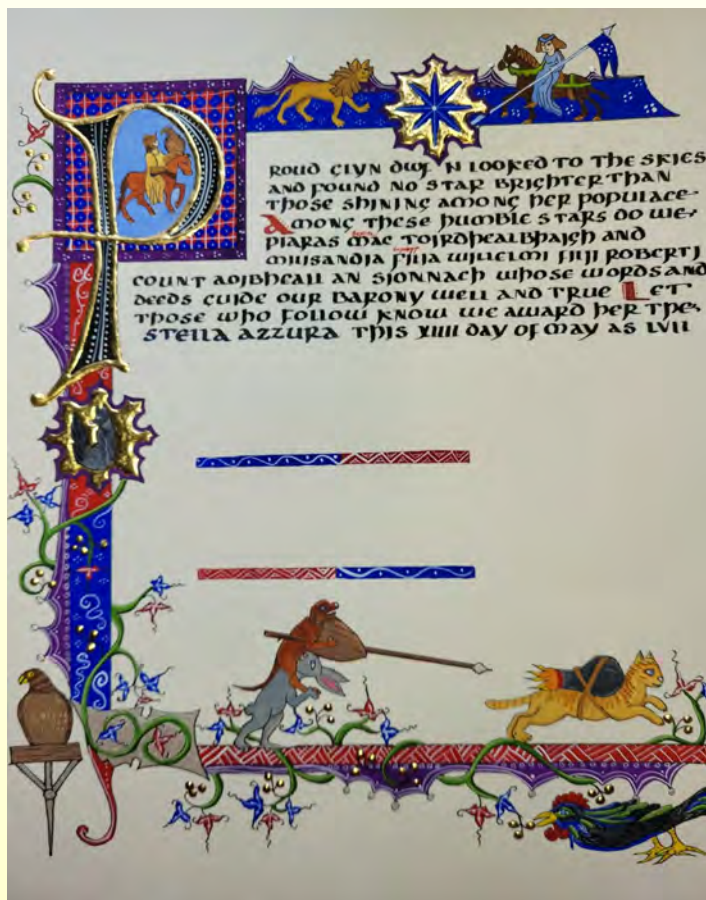 PROUD GLYN DWFN LOOKED TO THE SKIES
AND FOUND NO STAR BRIGHTER THAN
THOSE SHINING AMONG HER POPULACE
AMONG THESE HUMBLE STARS DO WE
PIARAS MAC TOIRDHEALBHAIGH AND
FILIA WILLELMI FILII ROBERTI
COUNT AOIBHEALL AN SIONNACH WHOSE WORDS AND
DEEDS GUIDE OUR BARONY WELL AND TRUE LET
THOSE WHO FOLLOW KNOW WE AWARD HER THE
STELLA AZZURA THIS XIIII DAY OF MAY AS LVII